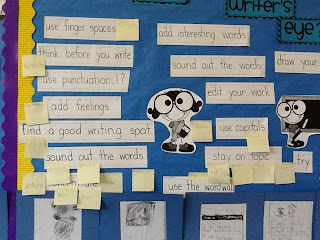 writer's
eye?
use finger spaces
add interesting words
think before you write
sound out the words
draw your
use punctuation.!?
edit your work
add feelings
find a good writing spot
use capitals
sound out the words
stay on topic
try
concentrate
use the wordwall